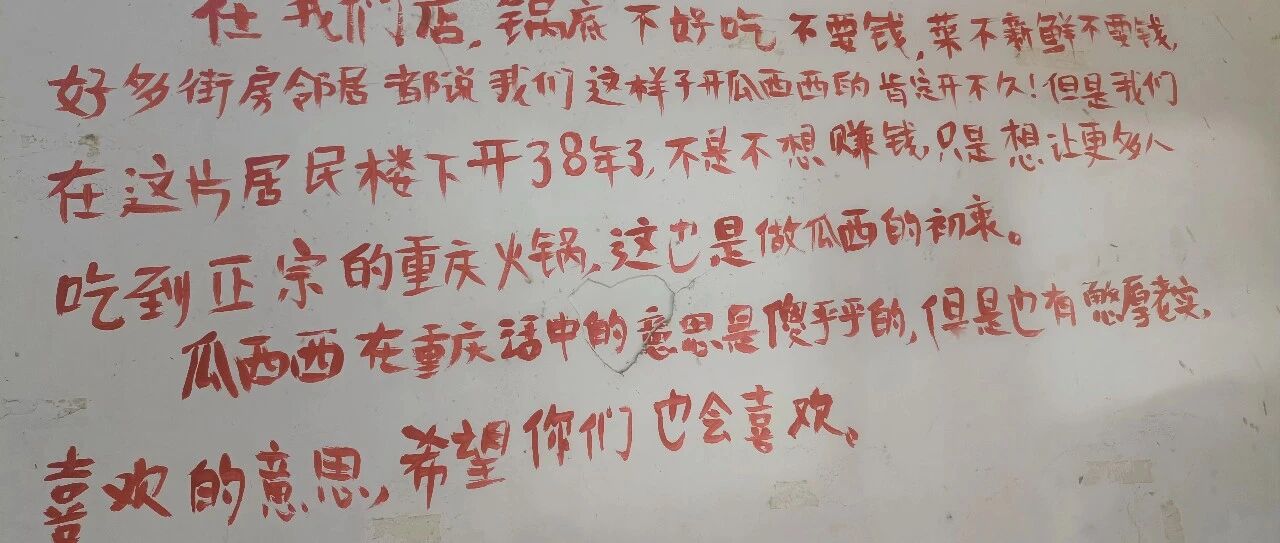 在我们店,锅底不好吃不要钱,菜不新鲜不要钱,
好多街房邻居都说我们这样子开瓜西西的肯定开不久!但是我们
在这片居民楼下开了8年了,不是不想赚钱,只是想让更多人
吃到正宗的重庆火锅,这也是做瓜西的初衷。
瓜西西在重庆话中的意思是傻乎乎的,但是也有憨厚老实,
喜欢的意思,希望你们也会喜欢。